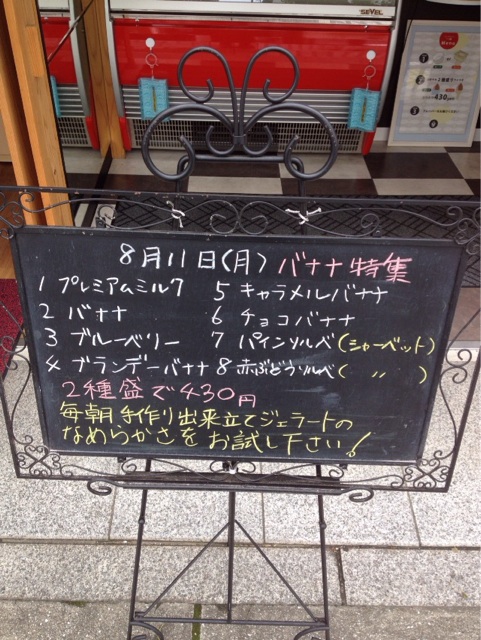 SEVEL
430円
8月11日(月) バナナ特集
1 プレミアムミルク 5 キャラメルバナナ
2 バナナ 6 チョコバナナ
3 ブルーベリー 7 パインソルベ(シャーベット)
4 ブランデーバナナ 8 赤ぶどうソルベ( 〃 )
2種盛で430円
毎朝手作り出来立てジェラートの
なめらかさをお試し下さい!